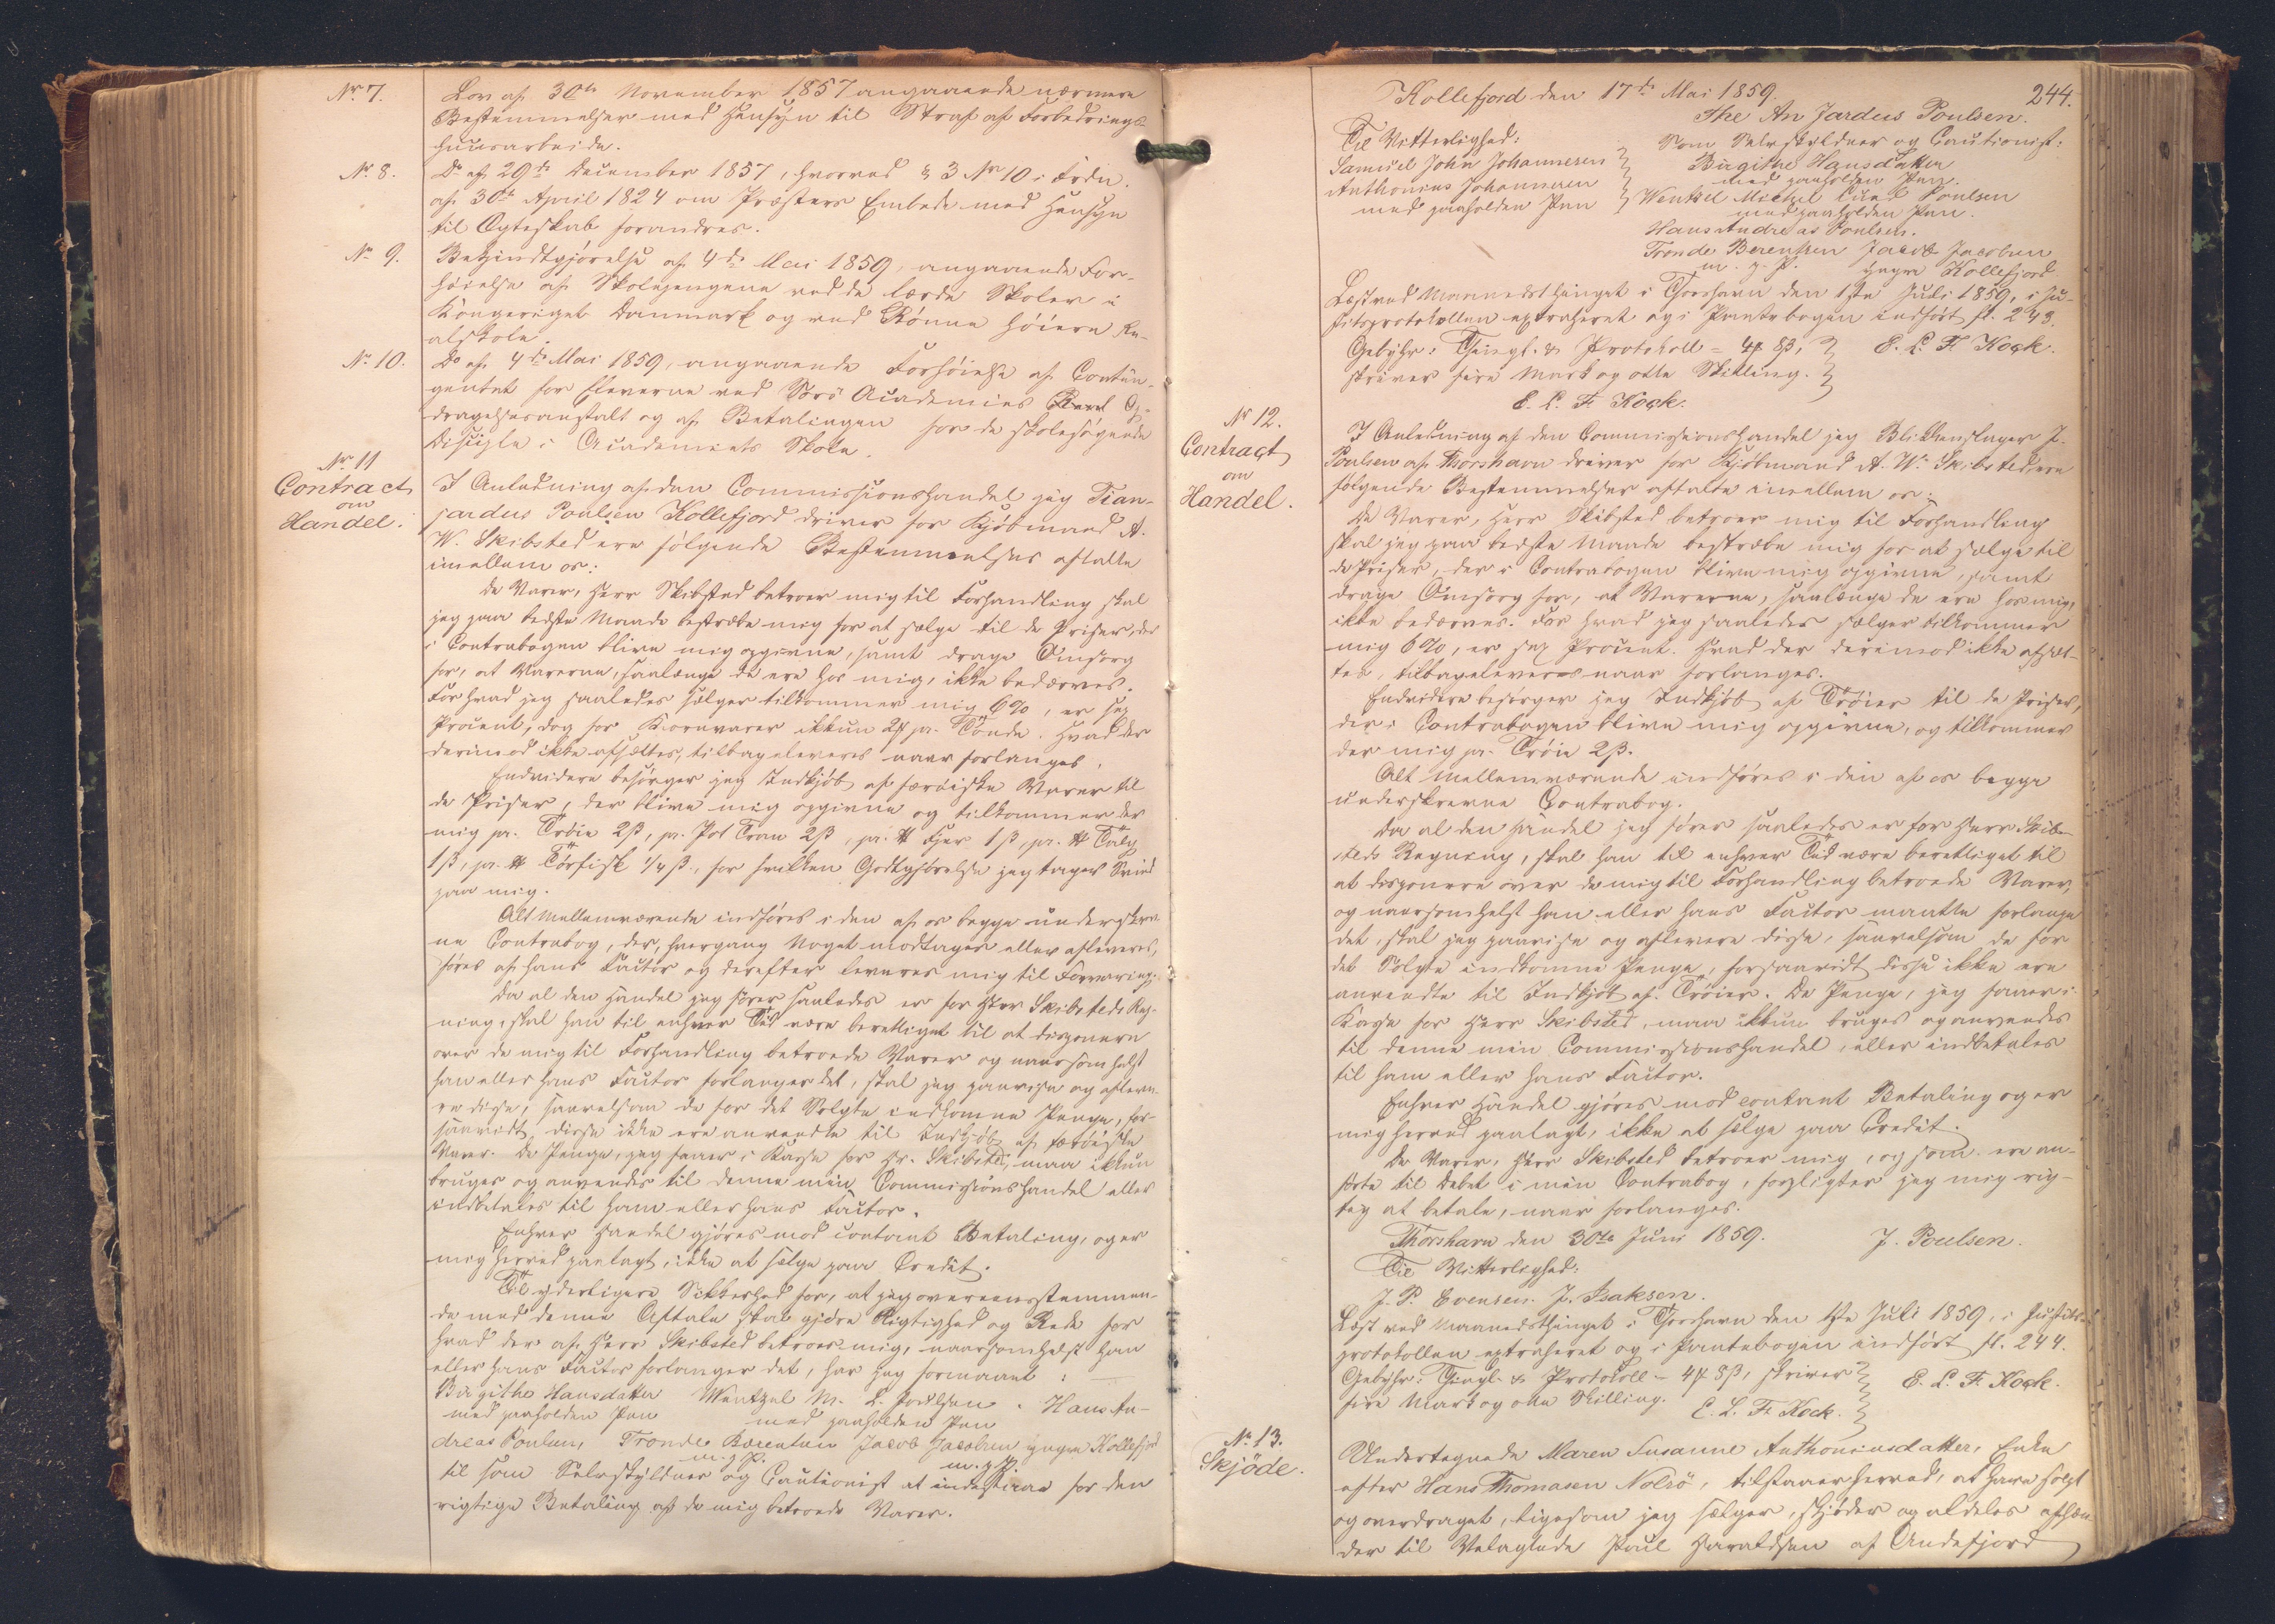 Nr. 7.
Lov af 30te November 1857 angaaende nærmere
Bestemmelser med Hensyn til Straf af Forbedrings-
huusarbeide.
Nr. 8.
Do af 29de December 1857, hvorved § 3 No 10 i Frdn.
af 30te April 1824 om Præsters Embede med Hensyn
til Ægteskab forandres.
Nr. 9.
Bekjendtgjørelse af 4de Mai 1859, angaaende For-
høielse af Skolepengene ved de lærde Skoler i
Kongeriget Danmark og ved Rønne høiere Re-
alskole.
Nr. 10.
Do af 4de Mai 1859, angaaende Forhøielse af Contin-
gentet for Eleverne ved Sorø Academies Op-
dragelsesanstalt og af Betalingen for de skolesøgende
Disciple i Academiets Skole.
Nr. 11
Contract
om
Handel.
I Anledning af den Commissionshandel jeg Tian-
jardus Poulsen Kollefjord driver for Kjøbmand A.
W. Skibsted ere følgende Bestemmelser aftalte
imellem os:
De Varer, Herr Skibsted betroer mig til Forhandling skal
jeg paa bedste Maade bestræbe mig for at sælge til de Priser, der
i Contrabogen blive mig opgivne, samt drage Omsorg
for, at Varerne, saalænge de ere hos mig, ikke bedærves.
For hvad jeg saaledes sælger tilkommer mig 6%, er sex
Procent, dog for Kornvarer ikkun 2# pr. Tønde. Hvad der
derimod ikke afsættes, tilbageleveres naar forlanges.
Endvidere besørger jeg Indkjøb af færøiske Varer til
de Priser, der blive mig opgivne og tilkommer der
mig pr. Trøie 2ß, pr. Pot Tran 2ß, pr. ℔ Fjer 1ß, pr. ℔ Talg
1ß, pr. ℔ Tørfisk ¼ß., for hvilken Godtgjørelse jeg tager Svind
paa mig.
Alt Mellemværende indføres i den af os begge underskrev-
ne Contrabog, der, hvergang Noget modtages eller afleveres,
føres af hans Factor og derefter leveres mig til Forvaring.
Da al den Handel jeg fører saaledes er for Herr Skibsteds Reg-
ning, skal han til enhver Tid være berettiget til at disponere
over de mig til Forhandling betroede Varer og naarsomhelst
han eller hans Factor forlanger det, skal jeg paavise og afleve-
re disse, saavelsom de for det Solgte indkomne Penge, for-
saavidt disse ikke ere anvendte til Indkjøb af færøiske
Varer. De Penge, jeg faaer i Kasse for Hr. Skibsted, maa ikkun
bruges og anvendes til denne min Commissionshandel eller
indbetales til ham eller hans Factor.
Enhver Handel gjøres mod contant Betaling, og er
mig herved paalagt, ikke at sælge paa Credit.
Til yderligere Sikkerhed for, at jeg overeensstemmen-
de med denne Aftale skal gjøre Rigtighed og Rede for
hvad der af Herr Skibsted betroes mig, naarsomhelst han
eller hans Factor forlanger det, har jeg formaaet:
Birgithe Hansdatter Wentzel M. L. Poulsen. Hans An-
med paaholden Pen med paaholden Pen
dreas Poulsen, Tronde Berentsen Jacob Jacobsen Kollefjord
m. p. P. m. p. P.
til som Selvskyldner og Cautionist at indestaae for den
rigtige Betaling af de mig betroede Varer.
244.
Kollefjord den 17de Mai 1859.
The An Jardus Poulsen.
Til Vitterlighed:
Som Selvskyldner og Cautionist:
Samuel John Johannesen
Birgithe Hansdatter
med paaholden Pen.
Anthonius Johannesen
Wentzel Michel Lund Poulsen
med paaholden Pen
med paaholden Pen.
Hans Andreas Poulsen.
Tronde Berentsen Jacob Jacobsen
m. p. P. Kollefjord.
Læst ved Maanedsthinget i Thorshavn den 1ste Juli 1859, i Ju-
stitsprotokollen extraheret og i Pantebogen indført fl. 243.
Gebyhr: Thingl. & Protokoll = 4# 8ß,
skriver fire Mark og otte Skilling.
E. L. Fr. Kock.
E. L. Fr. Kock.
Nr 12.
Contract
om
Handel.
I Anledning af den Commissionshandel jeg Blikkenslager J.
Poulsen af Thorshavn driver for Kjøbmand A. W. Skibsted, ere
følgende Bestemmelser aftalte imellem os:
De Varer, Herr Skibsted betroer mig til Forhandling
skal jeg paa bedste Maade bestræbe mig for at sælge til
de Priser, der i Contrabogen blive mig opgivne, samt
drage Omsorg for, at Varerne, saalænge de ere hos mig,
ikke bedærves. For hvad jeg saaledes sælger tilkommer
mig 6%, er sex Procent. Hvad der derimod ikke afsæt-
tes, tilbageleveres naar forlanges.
Endvidere besørger jeg Indkjøb af Trøier til de Priser,
der i Contrabogen blive mig opgivne, og tilkommer
der mig pr. Trøie 2ß.
Alt Mellemværende indføres i den af os begge
underskrevne Contrabog.
Da al den Handel jeg fører saaledes er for Herr Skib-
steds Regning, skal han til enhver Tid være berettiget til
at disponere over de mig til Forhandling betroede Varer,
og naarsomhelst han eller hans Factor maatte forlange
det, skal jeg paavise og aflevere disse, saavelsom de for
det Solgte indkomne Penge, forsaavidt disse ikke ere
anvendte til Indkjøb af Trøier. De Penge, jeg faaer i
Kasse for Herr Skibsted, maa ikkun bruges og anvendes
til denne min Commissionshandel, eller indbetales
til ham eller hans Factor.
Enhver Handel gjøres mod contant Betaling og er
mig herved paalagt, ikke at sælge paa Credit.
De Varer, Herr Skibsted betroer mig, og som ere an-
førte til Debet i min Contrabog, forpligter jeg mig rig-
tig at betale, naar forlanges.
Thorshavn den 30te Juni 1859. J. Poulsen.
Til Vitterlighed:
J. P. Evensen. J. Isaksen.
Læst ved Maanedsthinget i Thorshavn den 1ste Juli 1859, i Justits-
protokollen extraheret og i Pantebogen indført fl. 244.
Gebyhr: Thingl. & Protokoll = 4# 8ß, skriver
fire Mark og otte Skilling.
E. L. Fr. Kock.
E. L. Fr. Kock.
Nr. 13.
Skjöde.
Undertegnede Maren Susanne Anthoniusdatter, Enke
efter Hans Thomasen Nolsö, tilstaaer herved, at have solgt
og overdraget, ligesom jeg sælger, skjøder og aldeles afhæn-
der til Velagtede Poul Haraldsen af Andefjord